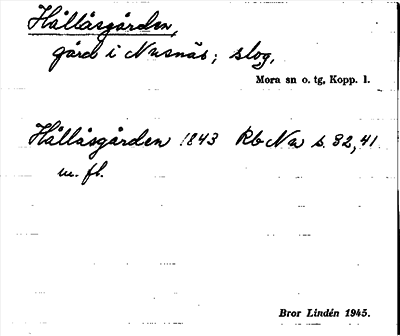 Hållåsgården,
gård i Nusnäs; slog,
Mora sn o. tg, Kopp. l.
Hållåsgården 1843 Rb Na s. 32, 41
m. fl.
Bror Lindén 1945.